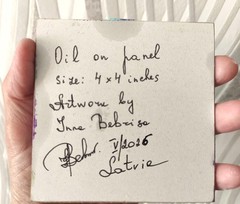 Oil on panel
Size: 4 x 4 inches
Artwork by
Inna Bebrisa
V/2026
Latvia